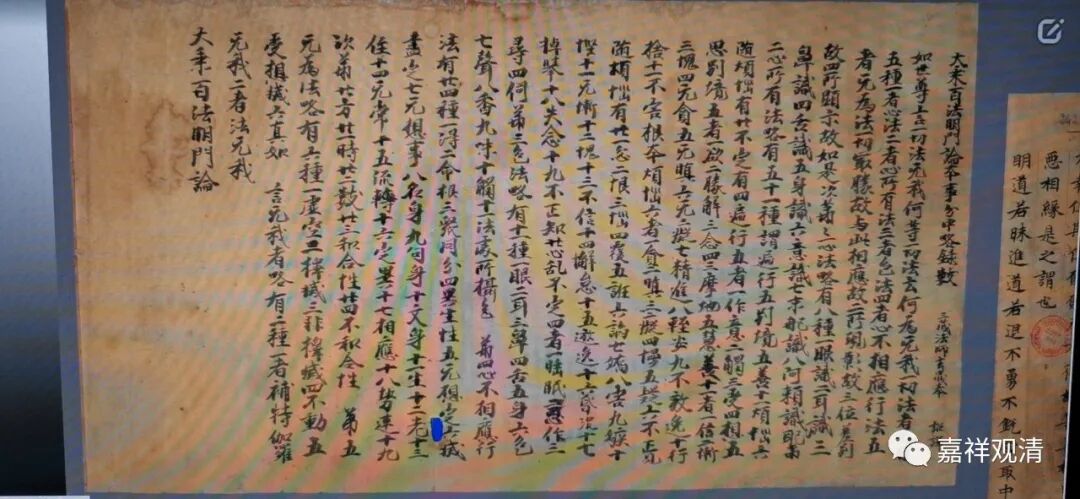 大乘百法明門論本事分中略錄數
三藏法師
如世尊言一切法无我何等一切法云何為无我一切法者
五種一者心法二者心所有法三者色法四者心不相應行法五
者无為法一切最勝故与此相應故二所現影故三位差別
故四所顯示故如是次第
心法略有八種一眼識二耳識三
鼻識四舌識五身識六意識七末那識八阿賴耶識
二心所有法略有五十一種謂遍行五別境五善十一煩惱六
隨煩惱有廿不定有四遍行五者一作意二觸三受四想五
思別境五者一欲二勝解三念四三摩地五慧善十一者一信二慚
三愧四无貪五无瞋六无癡七精進八輕安九不放逸十行
捨十一不害根本煩惱六者一貪二瞋三癡四慢五疑六不正見
隨煩惱有廿一忿二恨三惱四覆五誑六諂七憍八害九嫉十
慳十一无慚十二无愧十三不信十四懈怠十五放逸十六惛沈十七
掉舉十八失念十九不正知廿心亂不定四者一睡眠二惡作三
尋四伺第三色法略有十一種一眼二耳三鼻四舌五身六色
七聲八香九味十觸十一法處所攝色
第四心不相應行
法有廿四種一得二命根三眾同分四異生性五无想定六滅
盡定七无想事八名身九句身十文身十一生十二老十三
住十四无常十五流轉十六定異十七相應十八勢速十九
次第廿方廿一時廿二數廿三和合性廿四不和合性
第五
无為法略有六種一虛空二擇滅三非擇滅四不動五
受想滅六真如
言无我者略有二種一者補特伽羅
无我二者法无我
大乘百法明門論
惡相緣是之謂也
明道若昧進道若退不勇不銳
取中
嘉祥观清